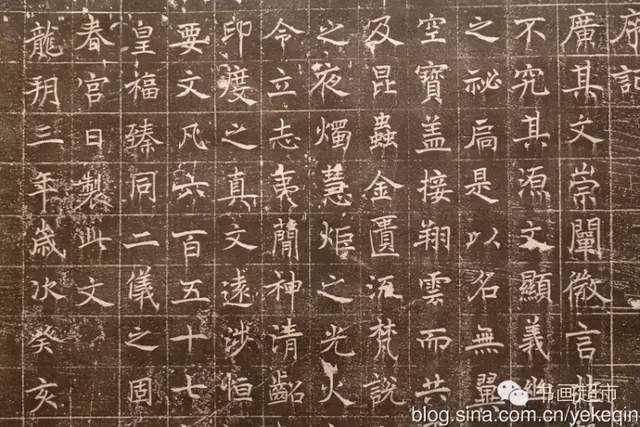 記
廣其文崇闡微言
不究其源文顯義
之祕扃是以名無翼
空寶盖接翔雲而共
及昆蟲金匱流梵說
之夜燭慧炬之光火
令立志夷簡神清齠
印度之真文遠涉恒
要文凡六百五十七
皇福臻同二儀之固
春宮日製此文
龍朔三年歲次癸亥
书画超市
blog.sina.com.cn/yekeqin